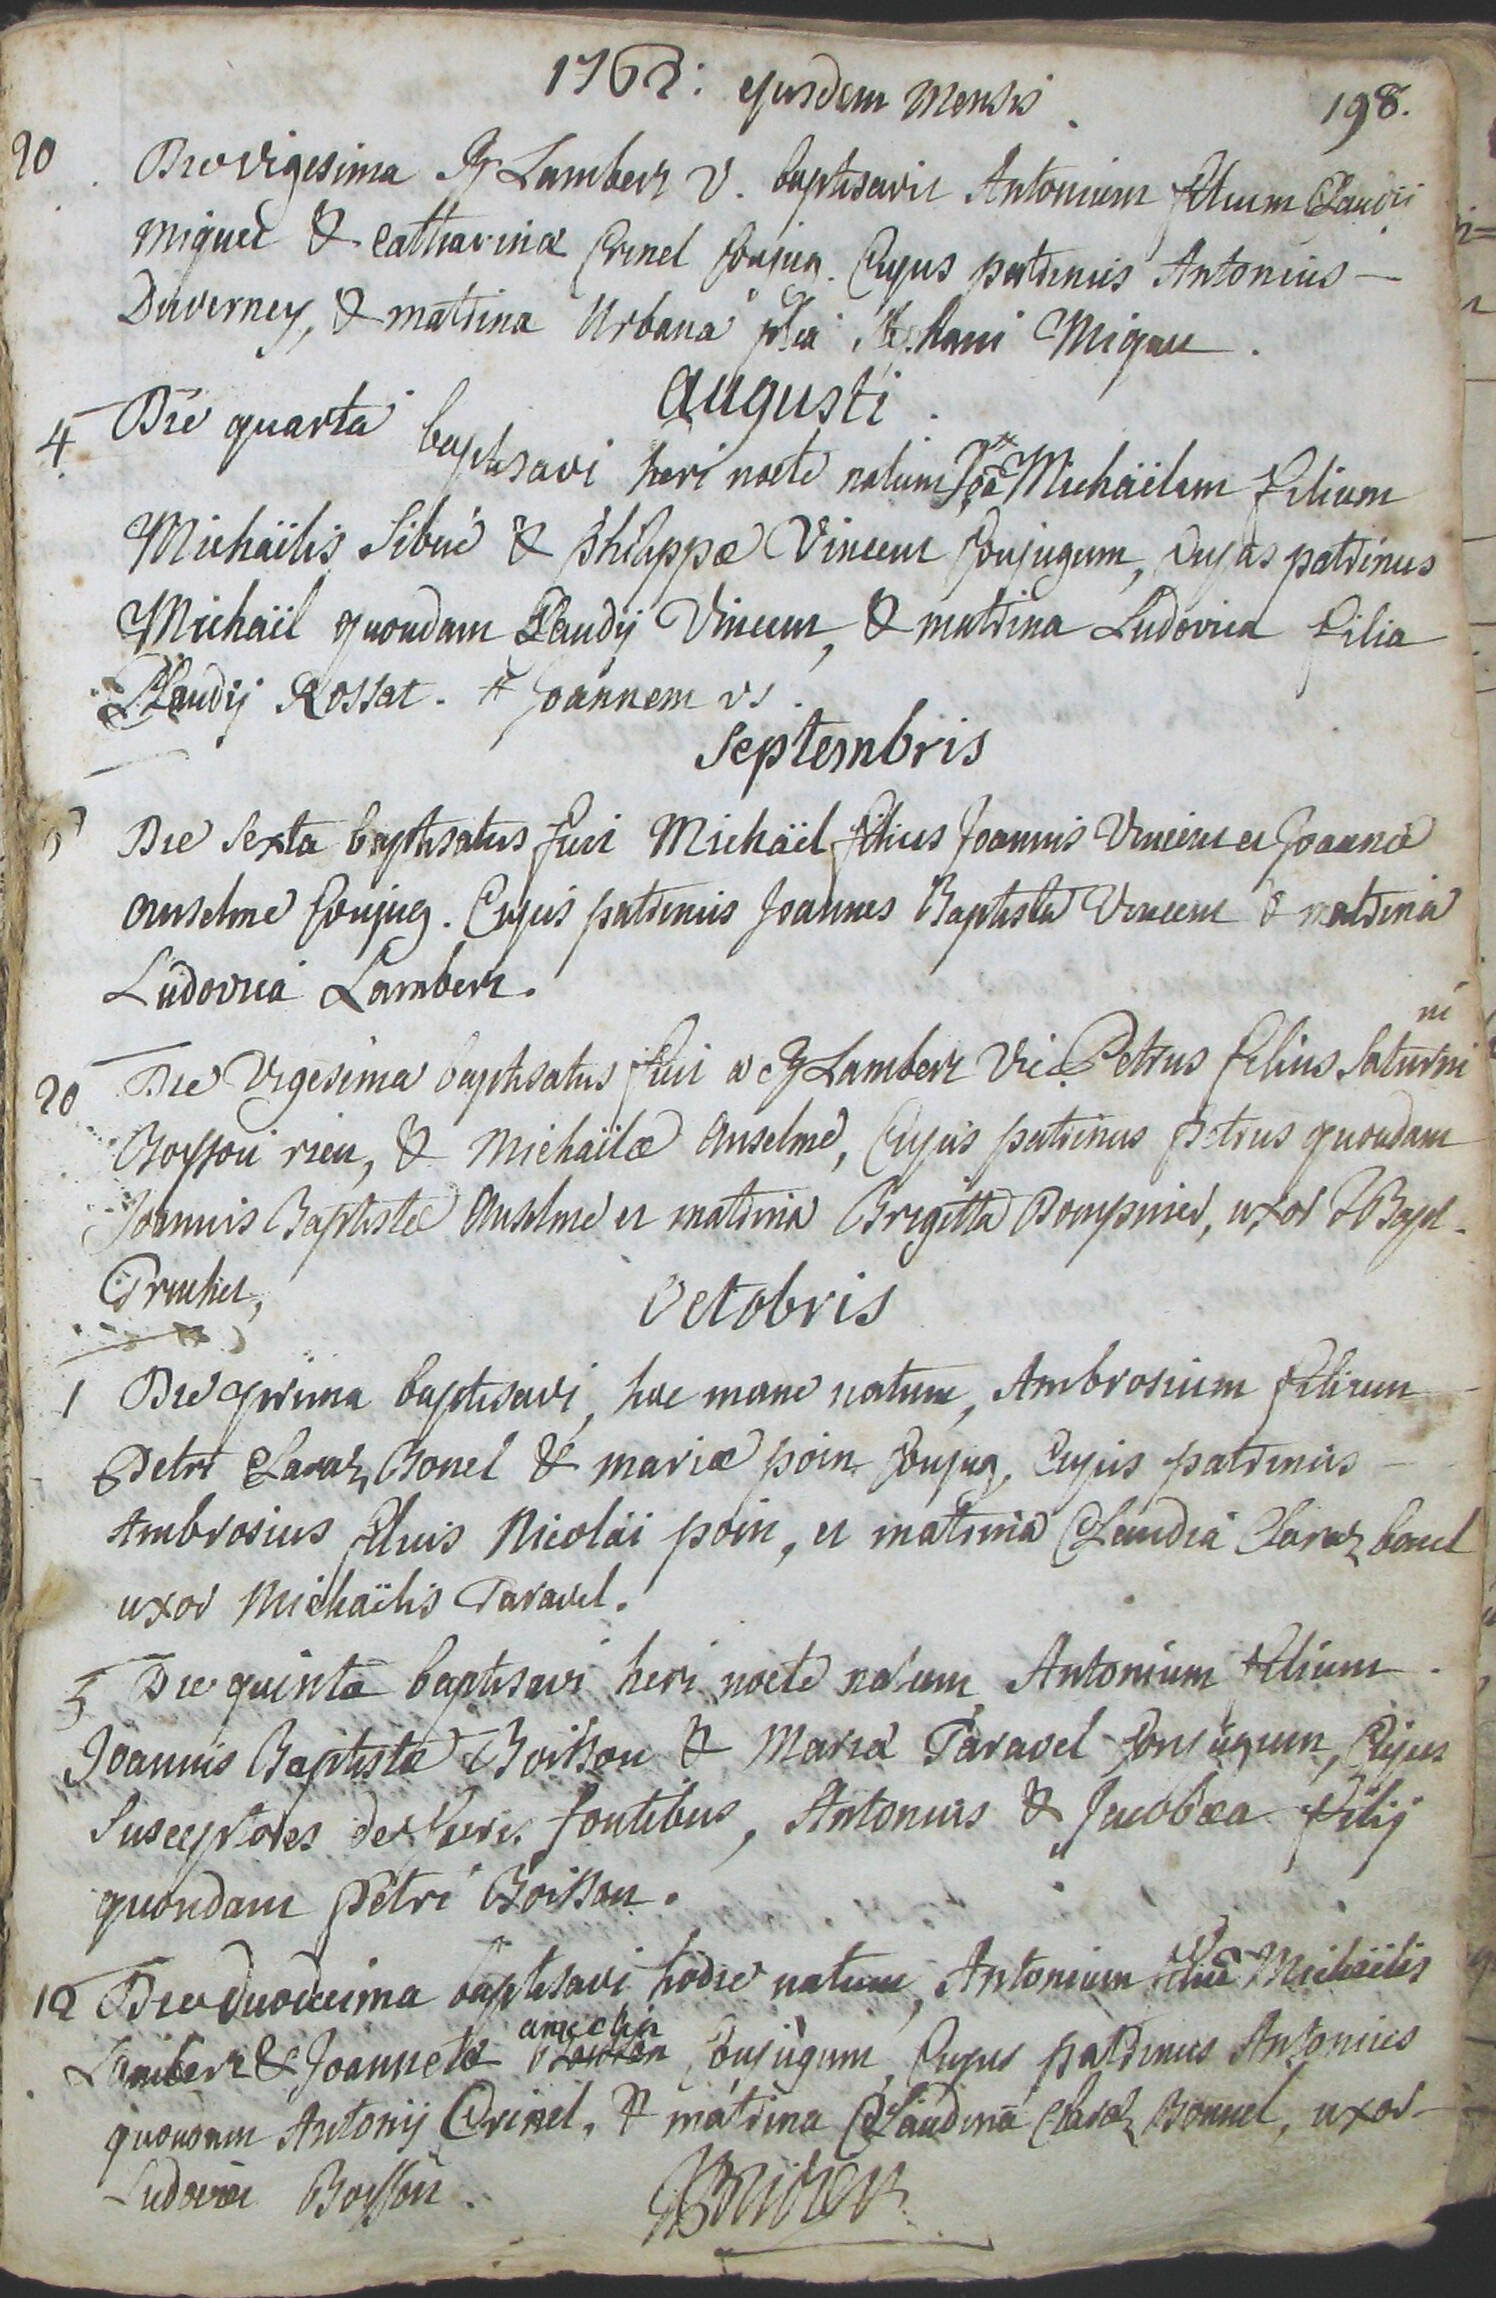 1762: ejusdem mensis 198.
20 Die vigesima Lambert V. baptisavit Antonium filium Claudii
Miguet & Catharinæ Crinel conjug. Cujus patrinus Antonius
Duverney, & matrina Urbana filia Stephani Miguet.
Augusti.
4 Die quarta baptisavi heri nocte natum Joa# Michäelem filium
Michäelis Sibué & Philippæ Vincent Conjugum, Cujus patrinus
Michäel quondam Claudij Vincent, & matrina Ludovica filia
Claudij Rossat. # Joannem vs.
Septembris
6 Die Sexta baptisatus fuit Michäel filius Joannis Vincent et Joannæ
Anselme Conjug. Cujus patrinus Joannes Baptista Vincent & matrina
Ludovica Lambert.
20 Die Vigesima baptisatus fuit a Lambert Vic. Petrus filius Saturni
ni
Boisson rieu, & Michäelæ Anselme, Cujus patrinus Petrus quondam
Joannis Baptistæ Anselme et matrina Brigitta Dompnier, uxor J Bapt.
Truchet,
Octobris
1 Die prima baptisavi, hoc mane natum, Ambrosium filium
Petri Claraz Bonel & mariæ poin Conjug, Cujus patrinus
Ambrosius filius Nicolai poin, et matrina Claudia Claraz bonel
uxor Michäelis Taravel.
5 Die quinta baptisavi heri nocte natum Antonium filium
Joannis Baptistæ Boisson & Mariæ Taravel Conjugum, Cujus
Susceptores de fontibus, Antonius & Jacobæa filij
quondam Petri Boisson.
12 Die duodecima baptisavi hodie natum, Antonium filiū Michäelis
Lambert & Joannetæ Conjugum, Cujus patrinus Antonius
quondam Antonij Crinel, & matrina Claudina Claraz Bonnel, uxor
Ludovici Boisson.